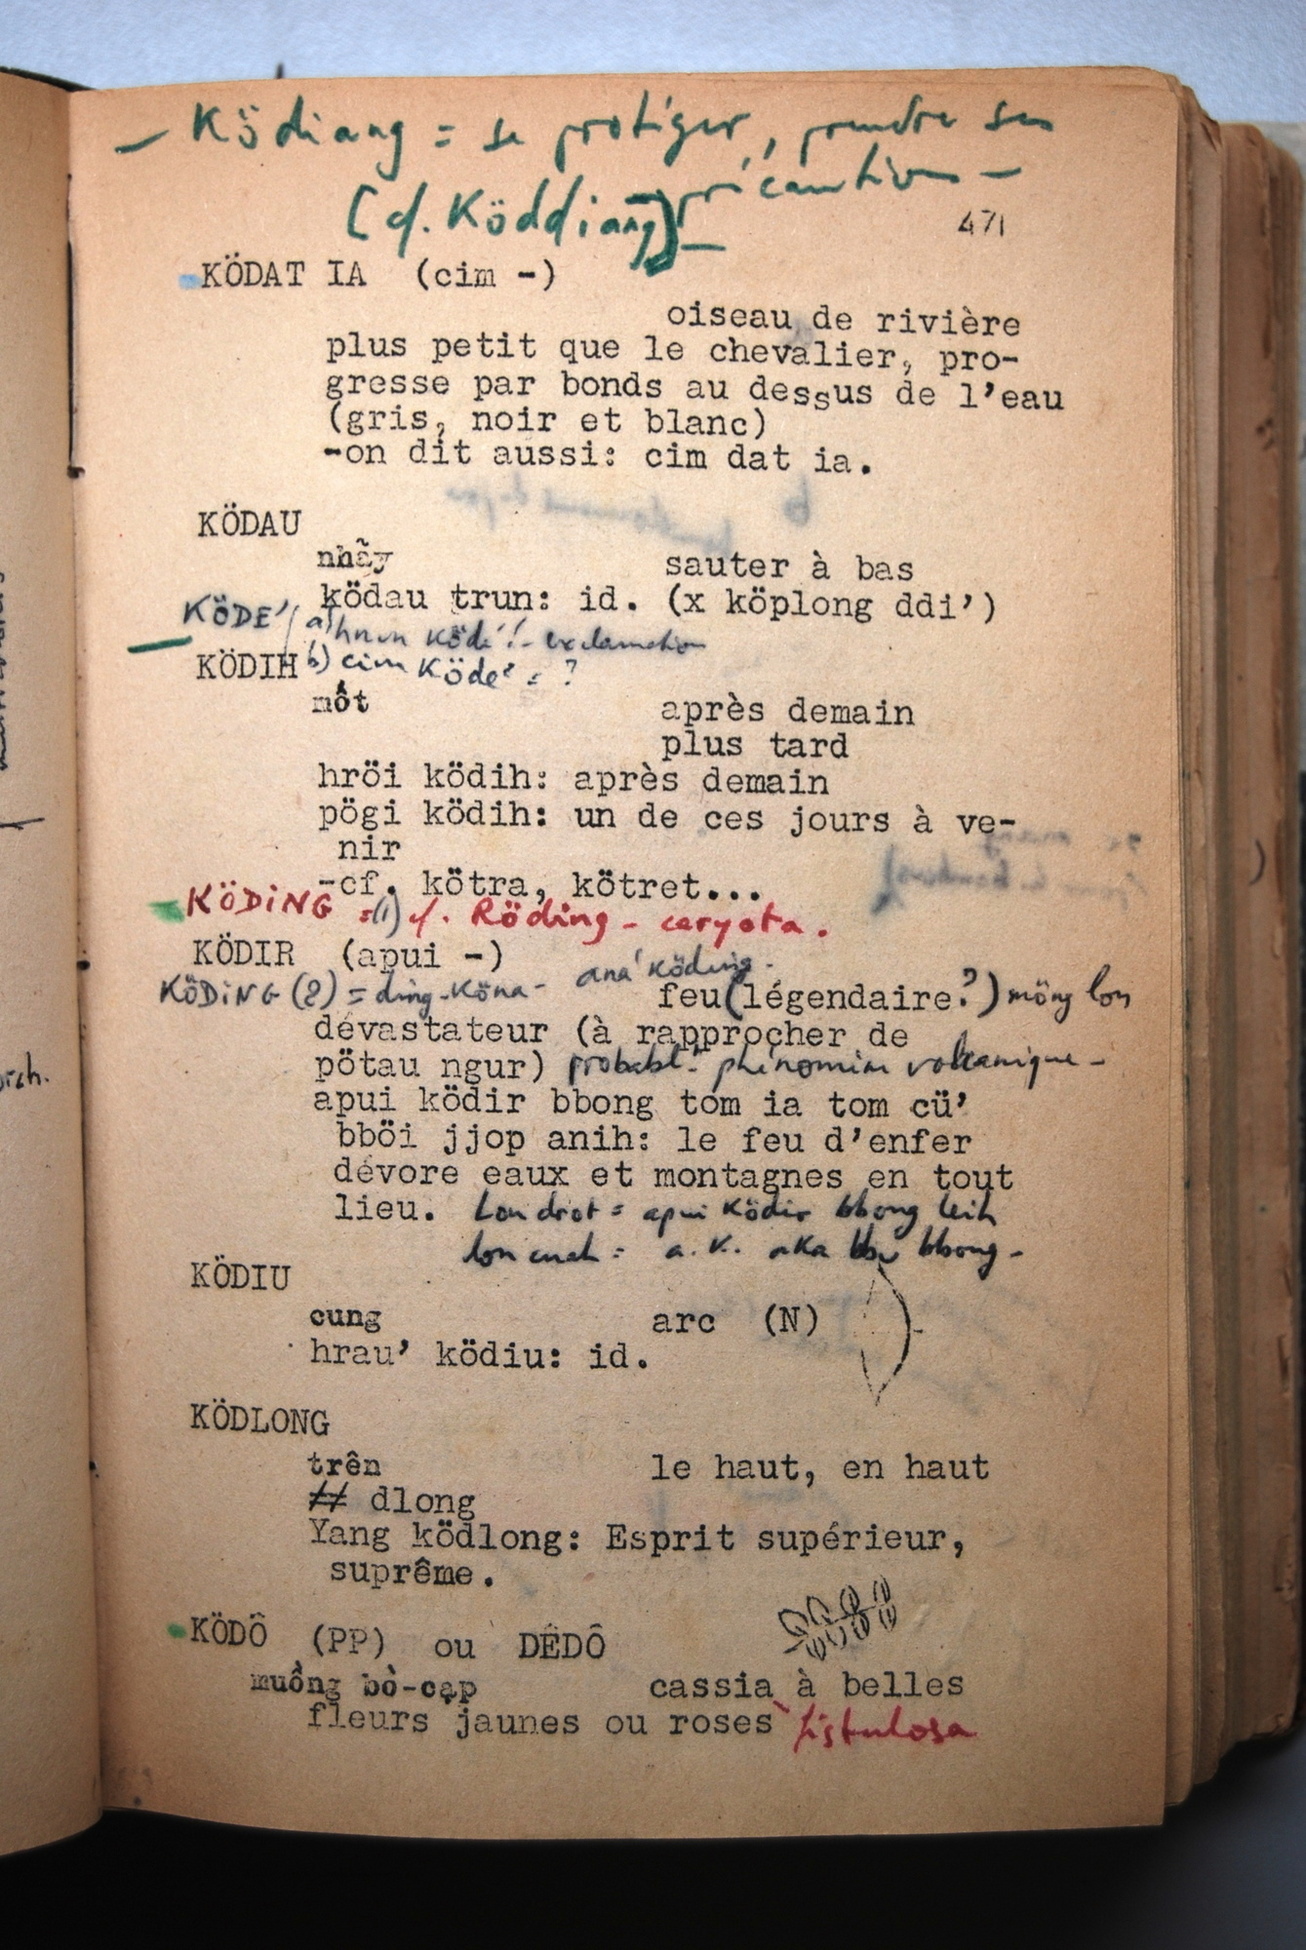 – Ködiang = se protéger, prendre ses
précautions –
[cf. Köddiang] –
471
KÖDAT IA (cim -)
oiseau de rivière
plus petit que le chevalier, pro-
gresse par bonds au dessus de l'eau
(gris, noir et blanc)
-on dit aussi: cim dat ia.
KÖDAU
nhãy sauter à bas
ködau trun: id. (x köplong ddi')
KÖDE' a) ködé'! - exclamation
b) cim Köde' = ?
KÖDIH
môt après demain
plus tard
hröi ködih: après demain
pögi ködih: un de ces jours à ve-
nir
-cf. kötra, kötret...
KÖDiNG =(1) cf. Röding - caryota.
KÖDIR (apui -)
KÖDiNG (2) = ding-köna- ana' köding.
feu (légendaire?) möng lon
dévastateur (à rapprocher de
pötau ngur) probablt. phénomène volcanique –
apui ködir bbong tom ia tom cü'
bböi jjop anih: le feu d'enfer
dévore eaux et montagnes en tout
lieu. Lon drot = apui Ködir bbong leih
lon = a. K. aka bbu bbong –
KÖDIU
cung arc (N)
hrau' ködiu: id.
KÖDLONG
trên le haut, en haut
dlong
Yang ködlong: Esprit supérieur,
suprême.
KÖDÔ (PP) ou DÊDÔ
muồng bò-cạp cassia à belles
fleurs jaunes ou roses fistulosa